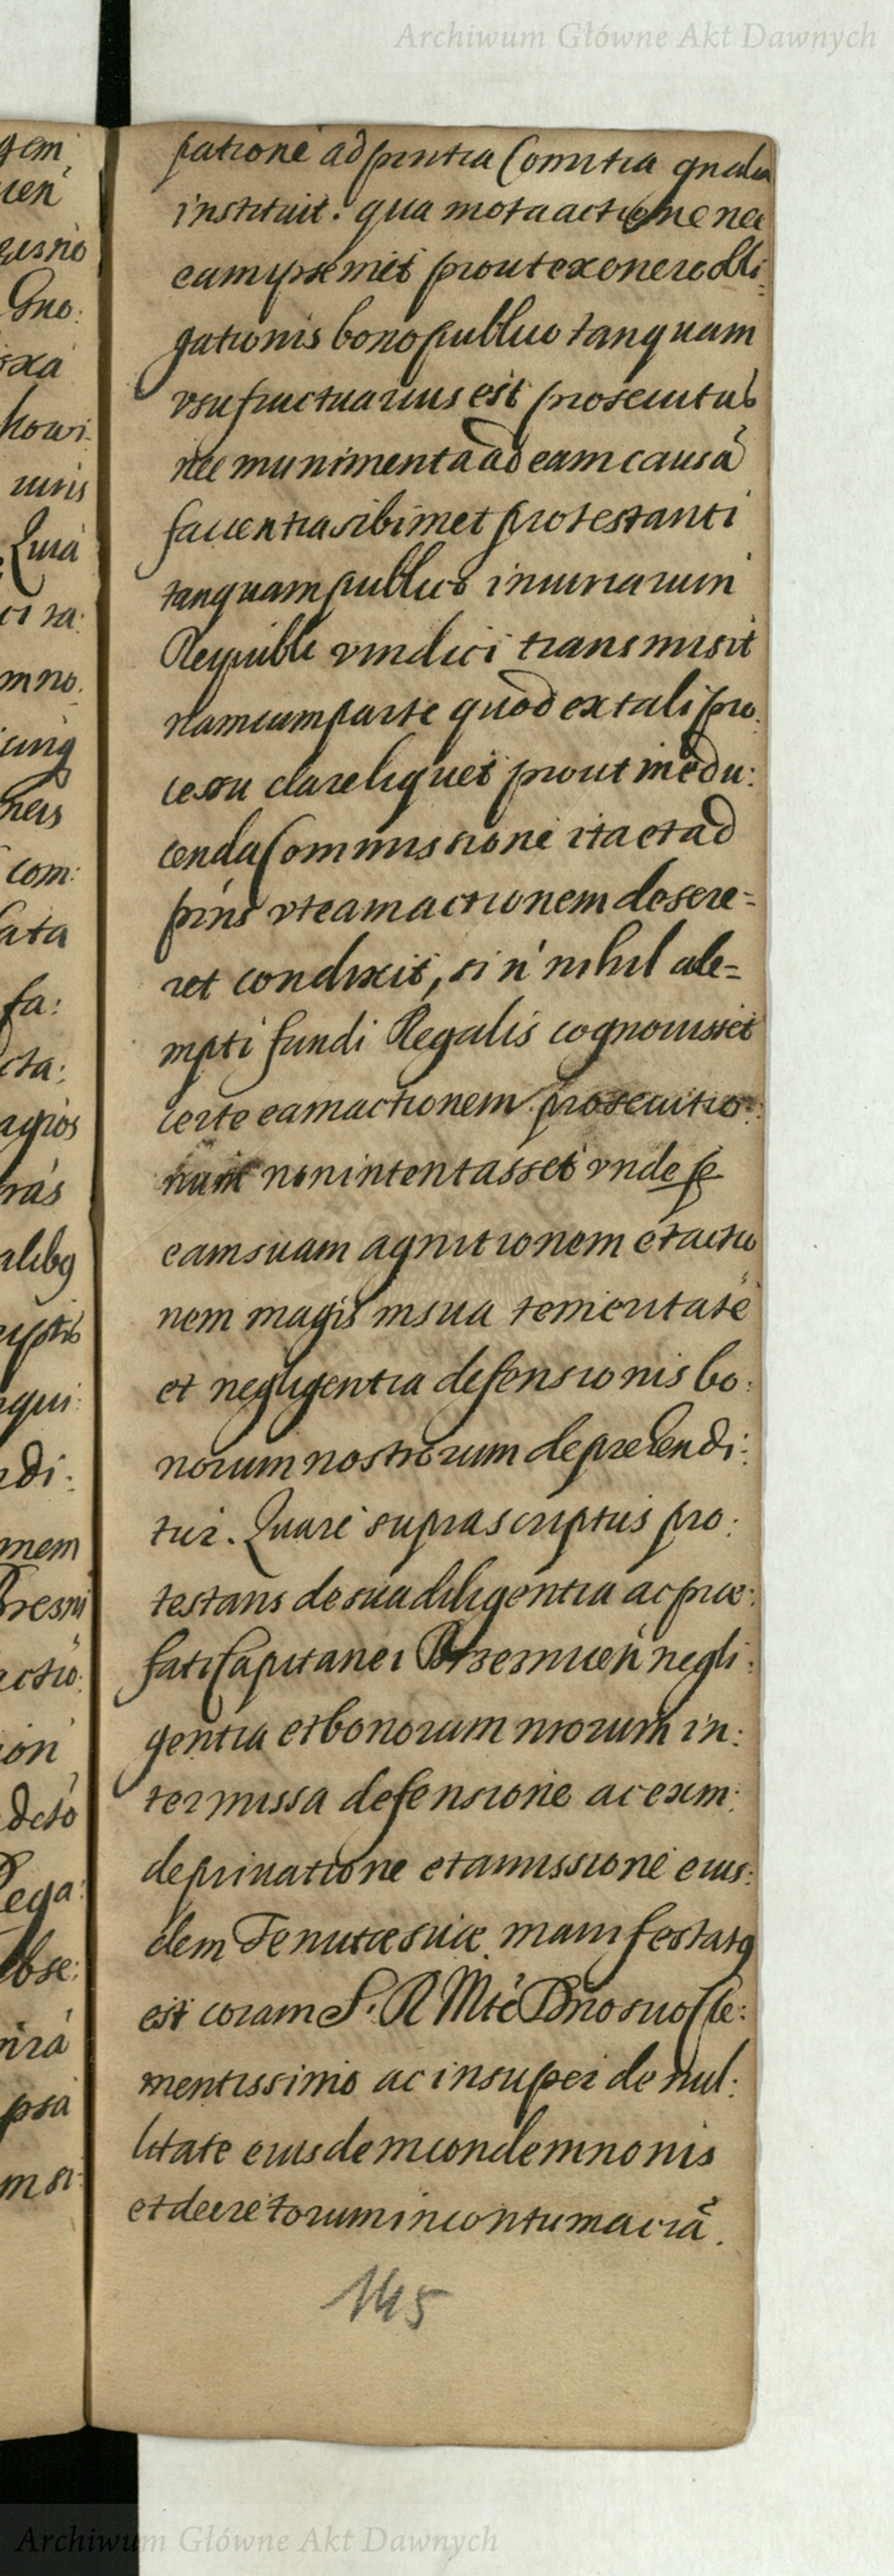 Archiwum Główne Akt Dawnych
patione ad pntia Comitia
instituit. qua mota actione nec
eam ipsemet prout ex onere obli-
gationis bono publico tanquam
vsufructuarius est prosecutus
nec munimenta ad eam causā
facientia sibimet protestanti
tanquam publico iniuriarum
Reipublce vindici transmisit
nam cum parte quod ex tali pro
cessu clare liquet prout in edu:
cenda Commissione ita et ad
pñs vt eam actionem desere-
ret condixit, si ñ nihil ade-
mpti fundi Regalis cognouisset
certe eam actionem prosecutio:
num non intentasset vnde
eam suam agnitionem et actio
nem magis in sua temeritate
et negligentia defensionis bo:
norum nostrorum deprehendi:
tur. Quare suprascriptus pro:
testans de sua diligentia ac præ:
fati Capitanei Brzesnicen̄ negli:
gentia et bonorum nrorum in:
termissa defensione ac exim:
depriuatione et amissione eius:
dem Tenutæ suæ manifestatq
est coram S. R Mte Dno suo Cle:
mentissimo ac insuper de nul:
litate eiusdem condemnonis
et decretorum in contumaciā.
145
gem
uen
Gno:
oxa
howi:
iuris
Quia
ci ra:
mno.
cunq
neis
com:
ata
fa:
cta:
agios
ras
alibq
iptis
qui:
di:
mem
Bresni
actio:
ion
deto
Rega:
obse:
psa
m si:
Archiwum Główne Akt Dawnych